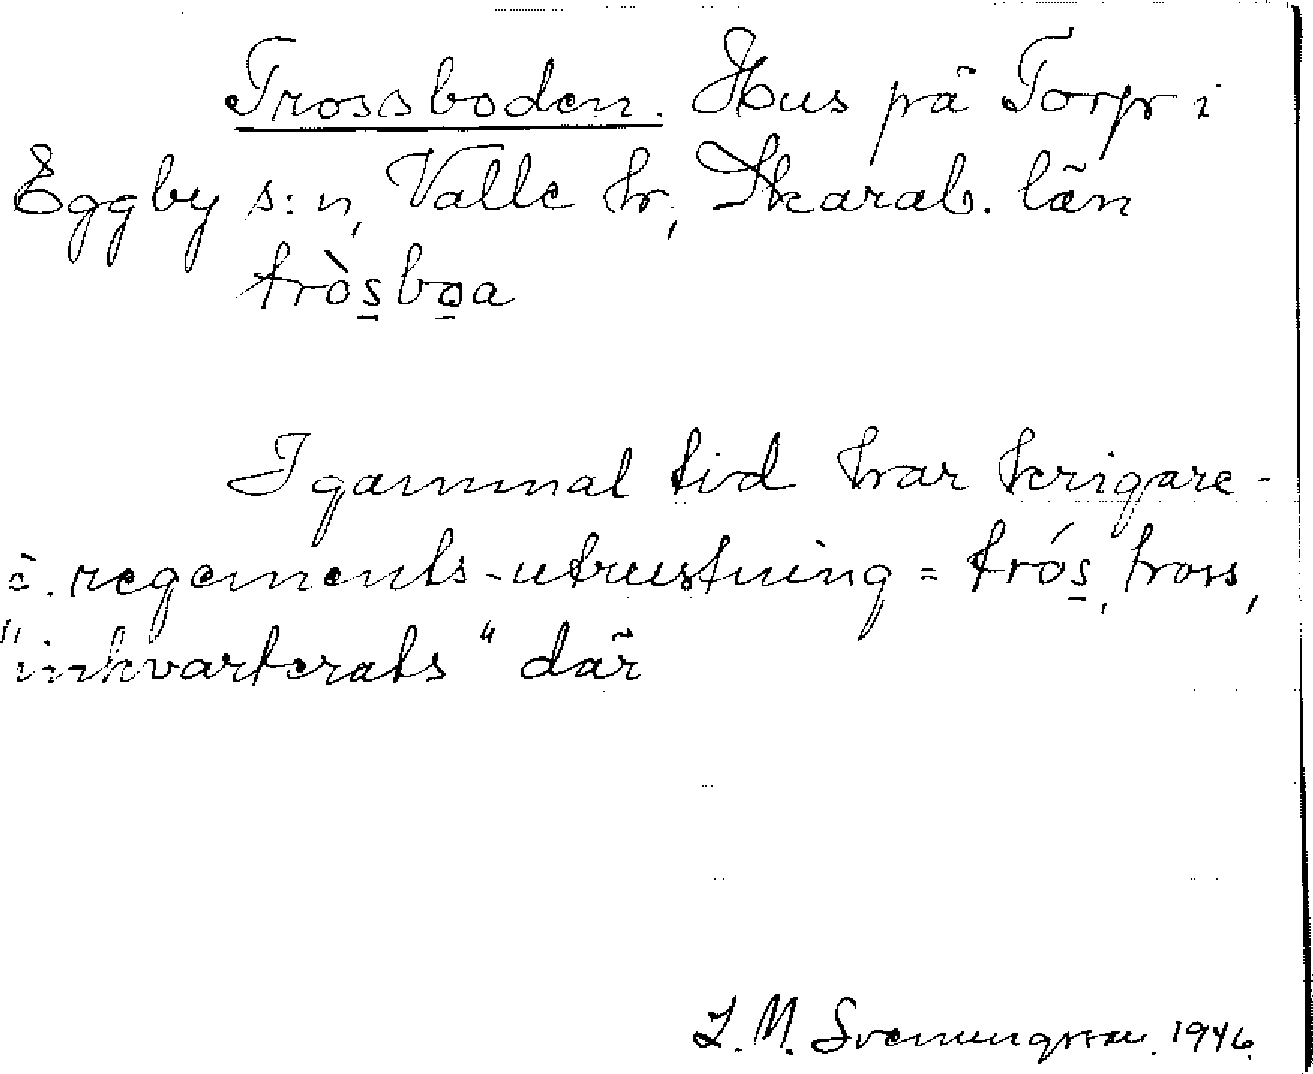 Trossboden. Hus på Torp i
Eggby s:n, Valle hr, Skarab. län
tròs̲bo̲a
I gammal tid har krigare-
o. regements-utrustning = trós̲, tross,
"inkvarterats" där
L. M. Svenungsson. 1946.